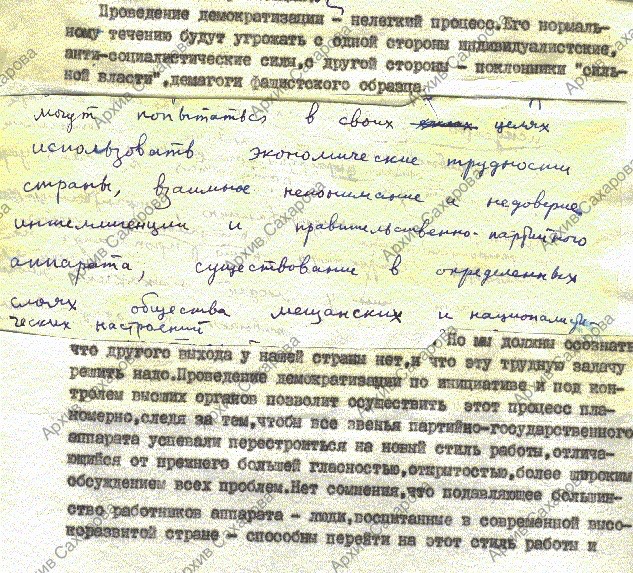 Проведение демократизации - нелегкий процесс.Его нормаль-
ному течению будут угрожать с одной стороны индивидуалистские,
анти-социалистические силы,с другой стороны - поклонники "силь-
ной власти",демагоги фашистского образца.
могут попытаться в своих целях
использовать экономические трудности
страны, взаимное непонимание и недоверие
интеллигенции и правительственно-партийного
аппарата, существование в определенных
слоях общества мещанских и националисти-
ческих настроений
Но мы должны осознать
что другого выхода у нашей страны нет,и что эту трудную задачу
решить надо.Проведение демократизации по инициативе и под кон-
тролем высших органов позволит осуществить этот процесс пла-
номерно,следя за тем,чтобы все звенья партийно-государственного
аппарата успевали перестроиться на новый стиль работы,отлича-
ющийся от прежнего большей гласностью,открытостью,более широким
обсуждением всех проблем.Нет сомнения,что подавляющее большин-
ство работников аппарата - люди,воспитанные в современной высо-
коразвитой стране - способны перейти на этот стиль работы и
Архив Сахарова